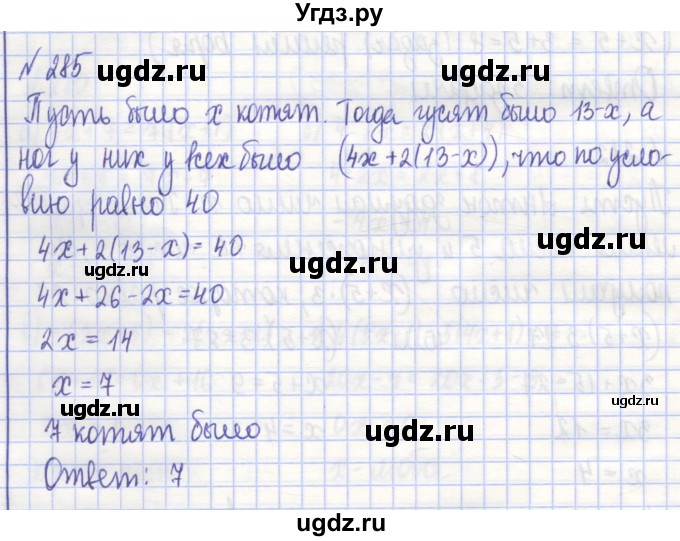 Угдз.ру
№ 285
Пусть было x котят. Тогда гусят было 13-x, а
ног у них у всех было (4x+2(13-x)), что по усло-
вию равно 40
4x+2(13-x)=40
4x+26-2x=40
2x=14
x=7
7 котят было
Ответ: 7
ugdz.ru
ugdz.ru
ugdz.ru
ugdz.ru
ugdz.ru
ugdz.ru
ugdz.ru
ugdz.ru
ugdz.ru
ugdz.ru
ugdz.ru